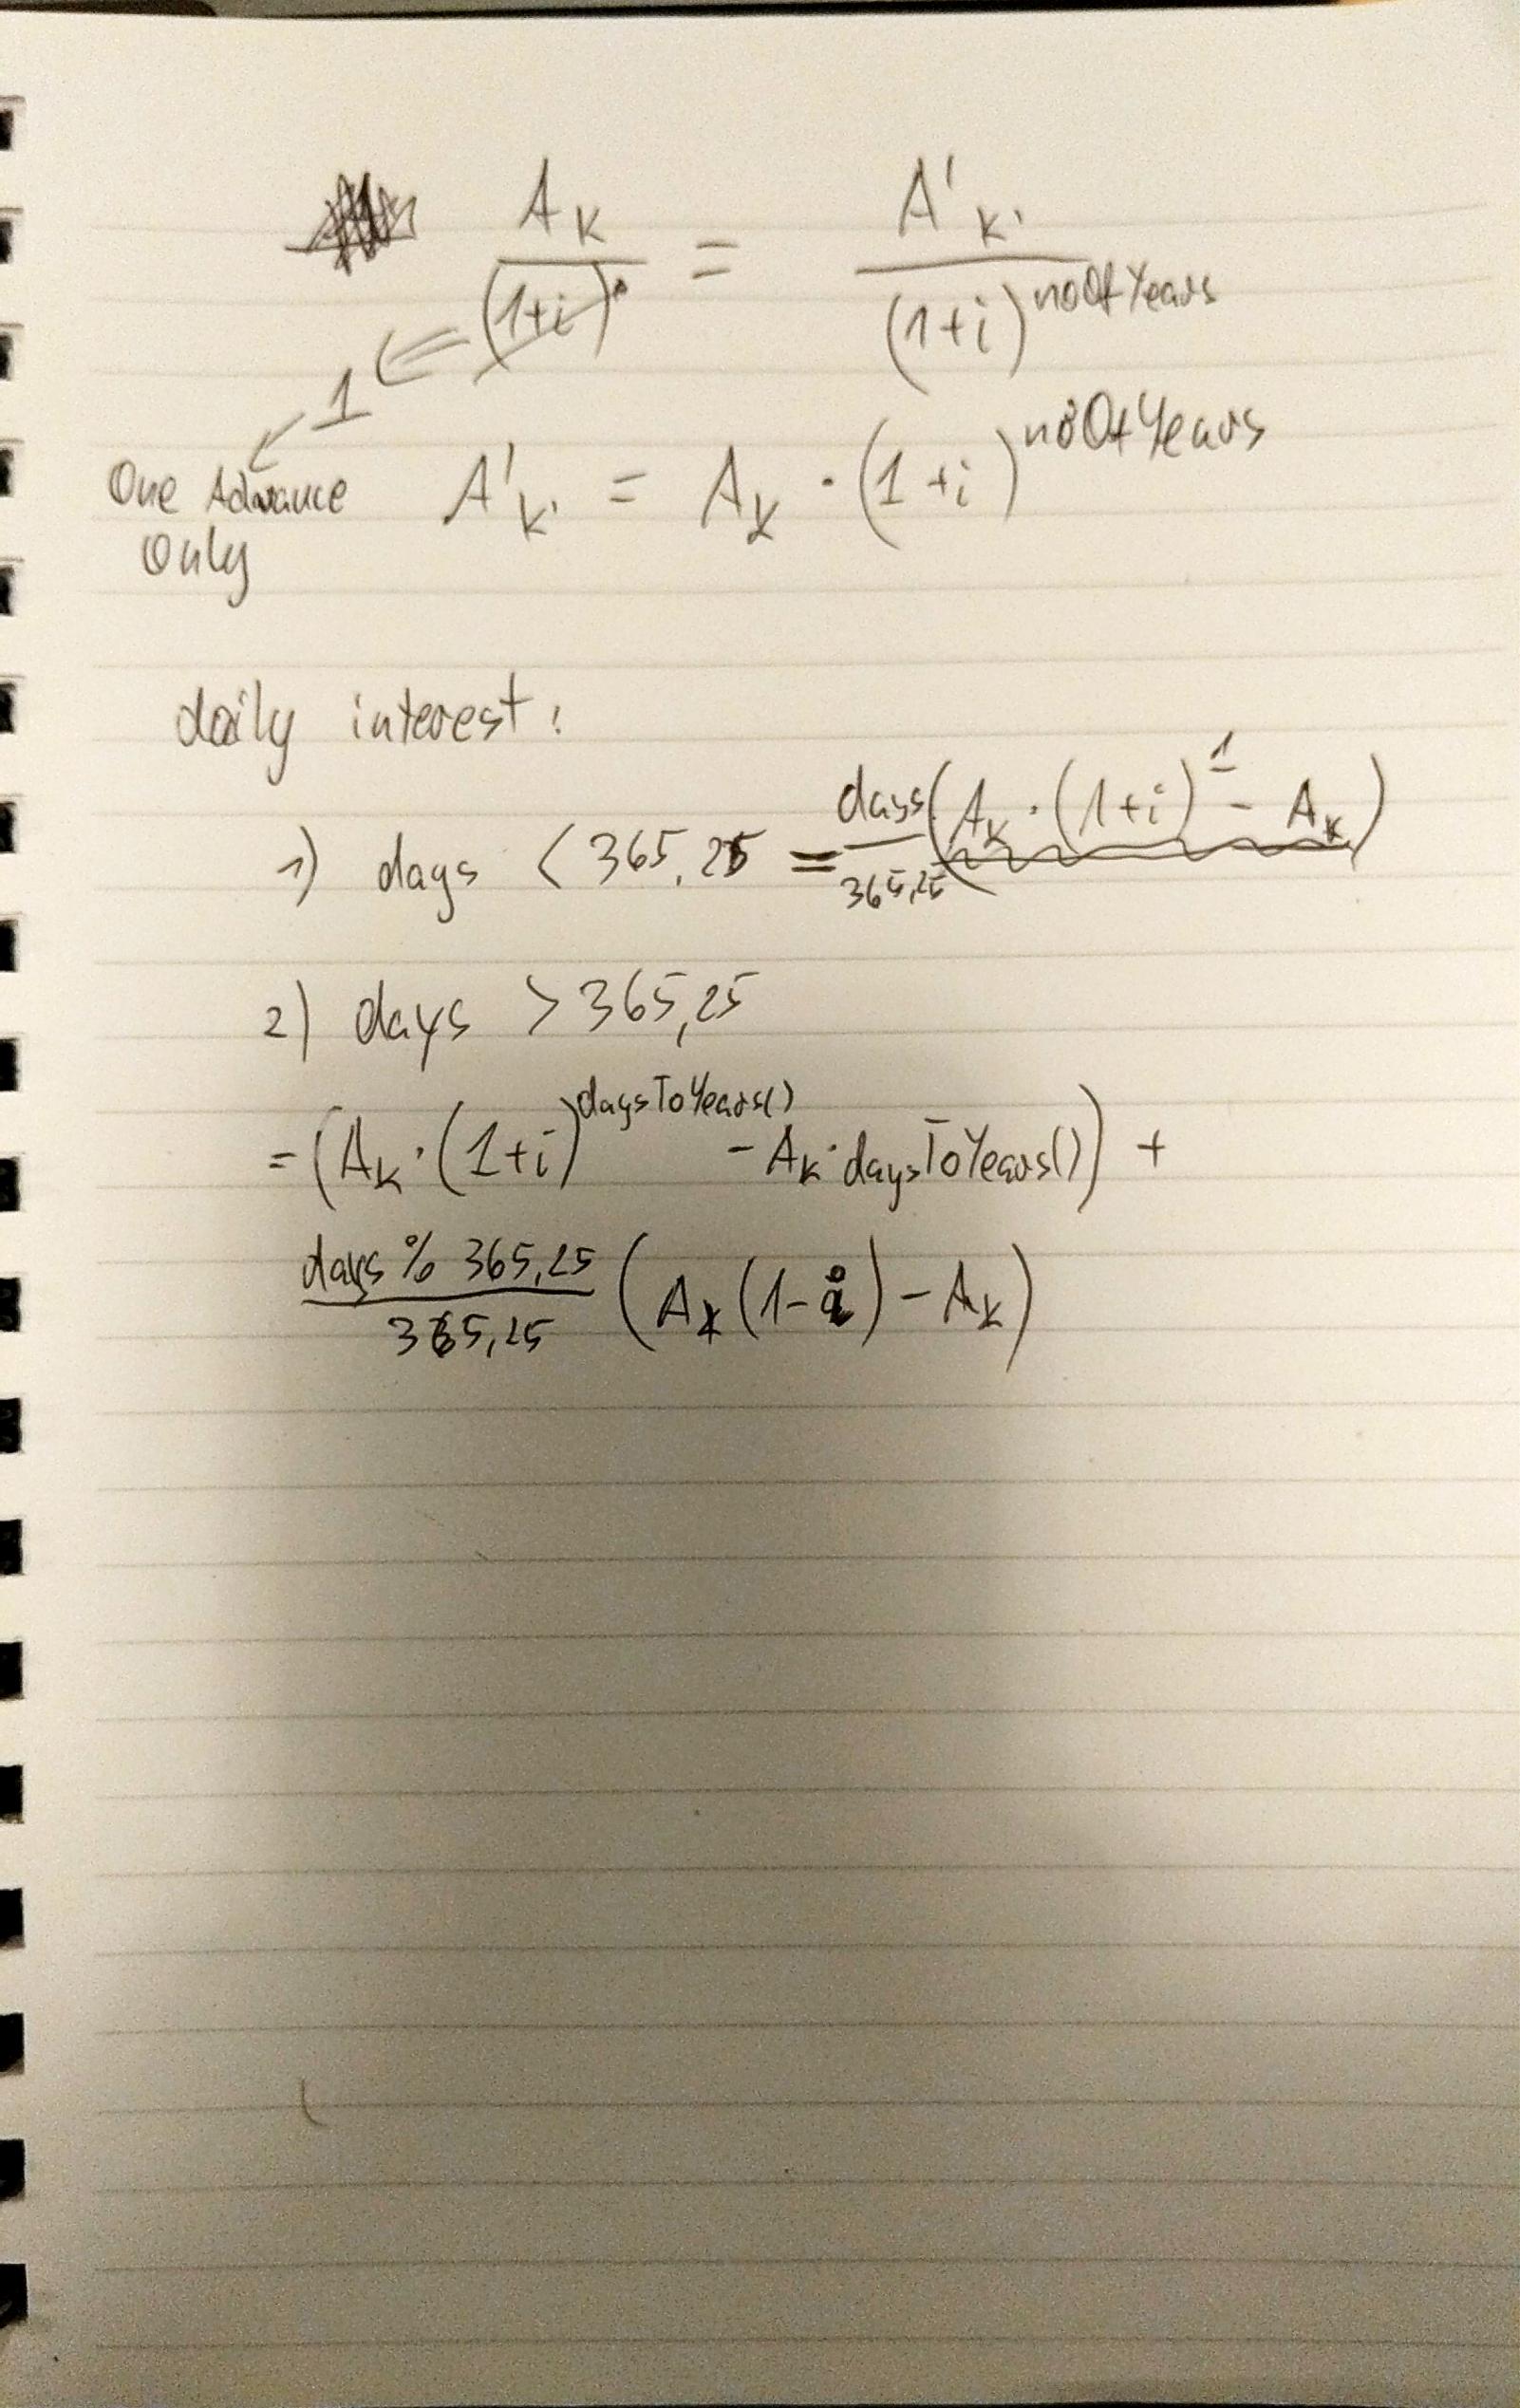 A_K / (1+i)^0 = A'_K' / (1+i)^noOfYears
1 ⇐
One Advance Only
A'_K' = A_K · (1+i)^noOfYears
daily interest:
1) days < 365,25 = days/365,25 (A_K · (1+i)^1 - A_K)
2) days > 365,25
= (A_K · (1+i)^daysToYears() - A_K · daysToYears()) +
days % 365,25 / 365,25 (A_K (1-i) - A_K)